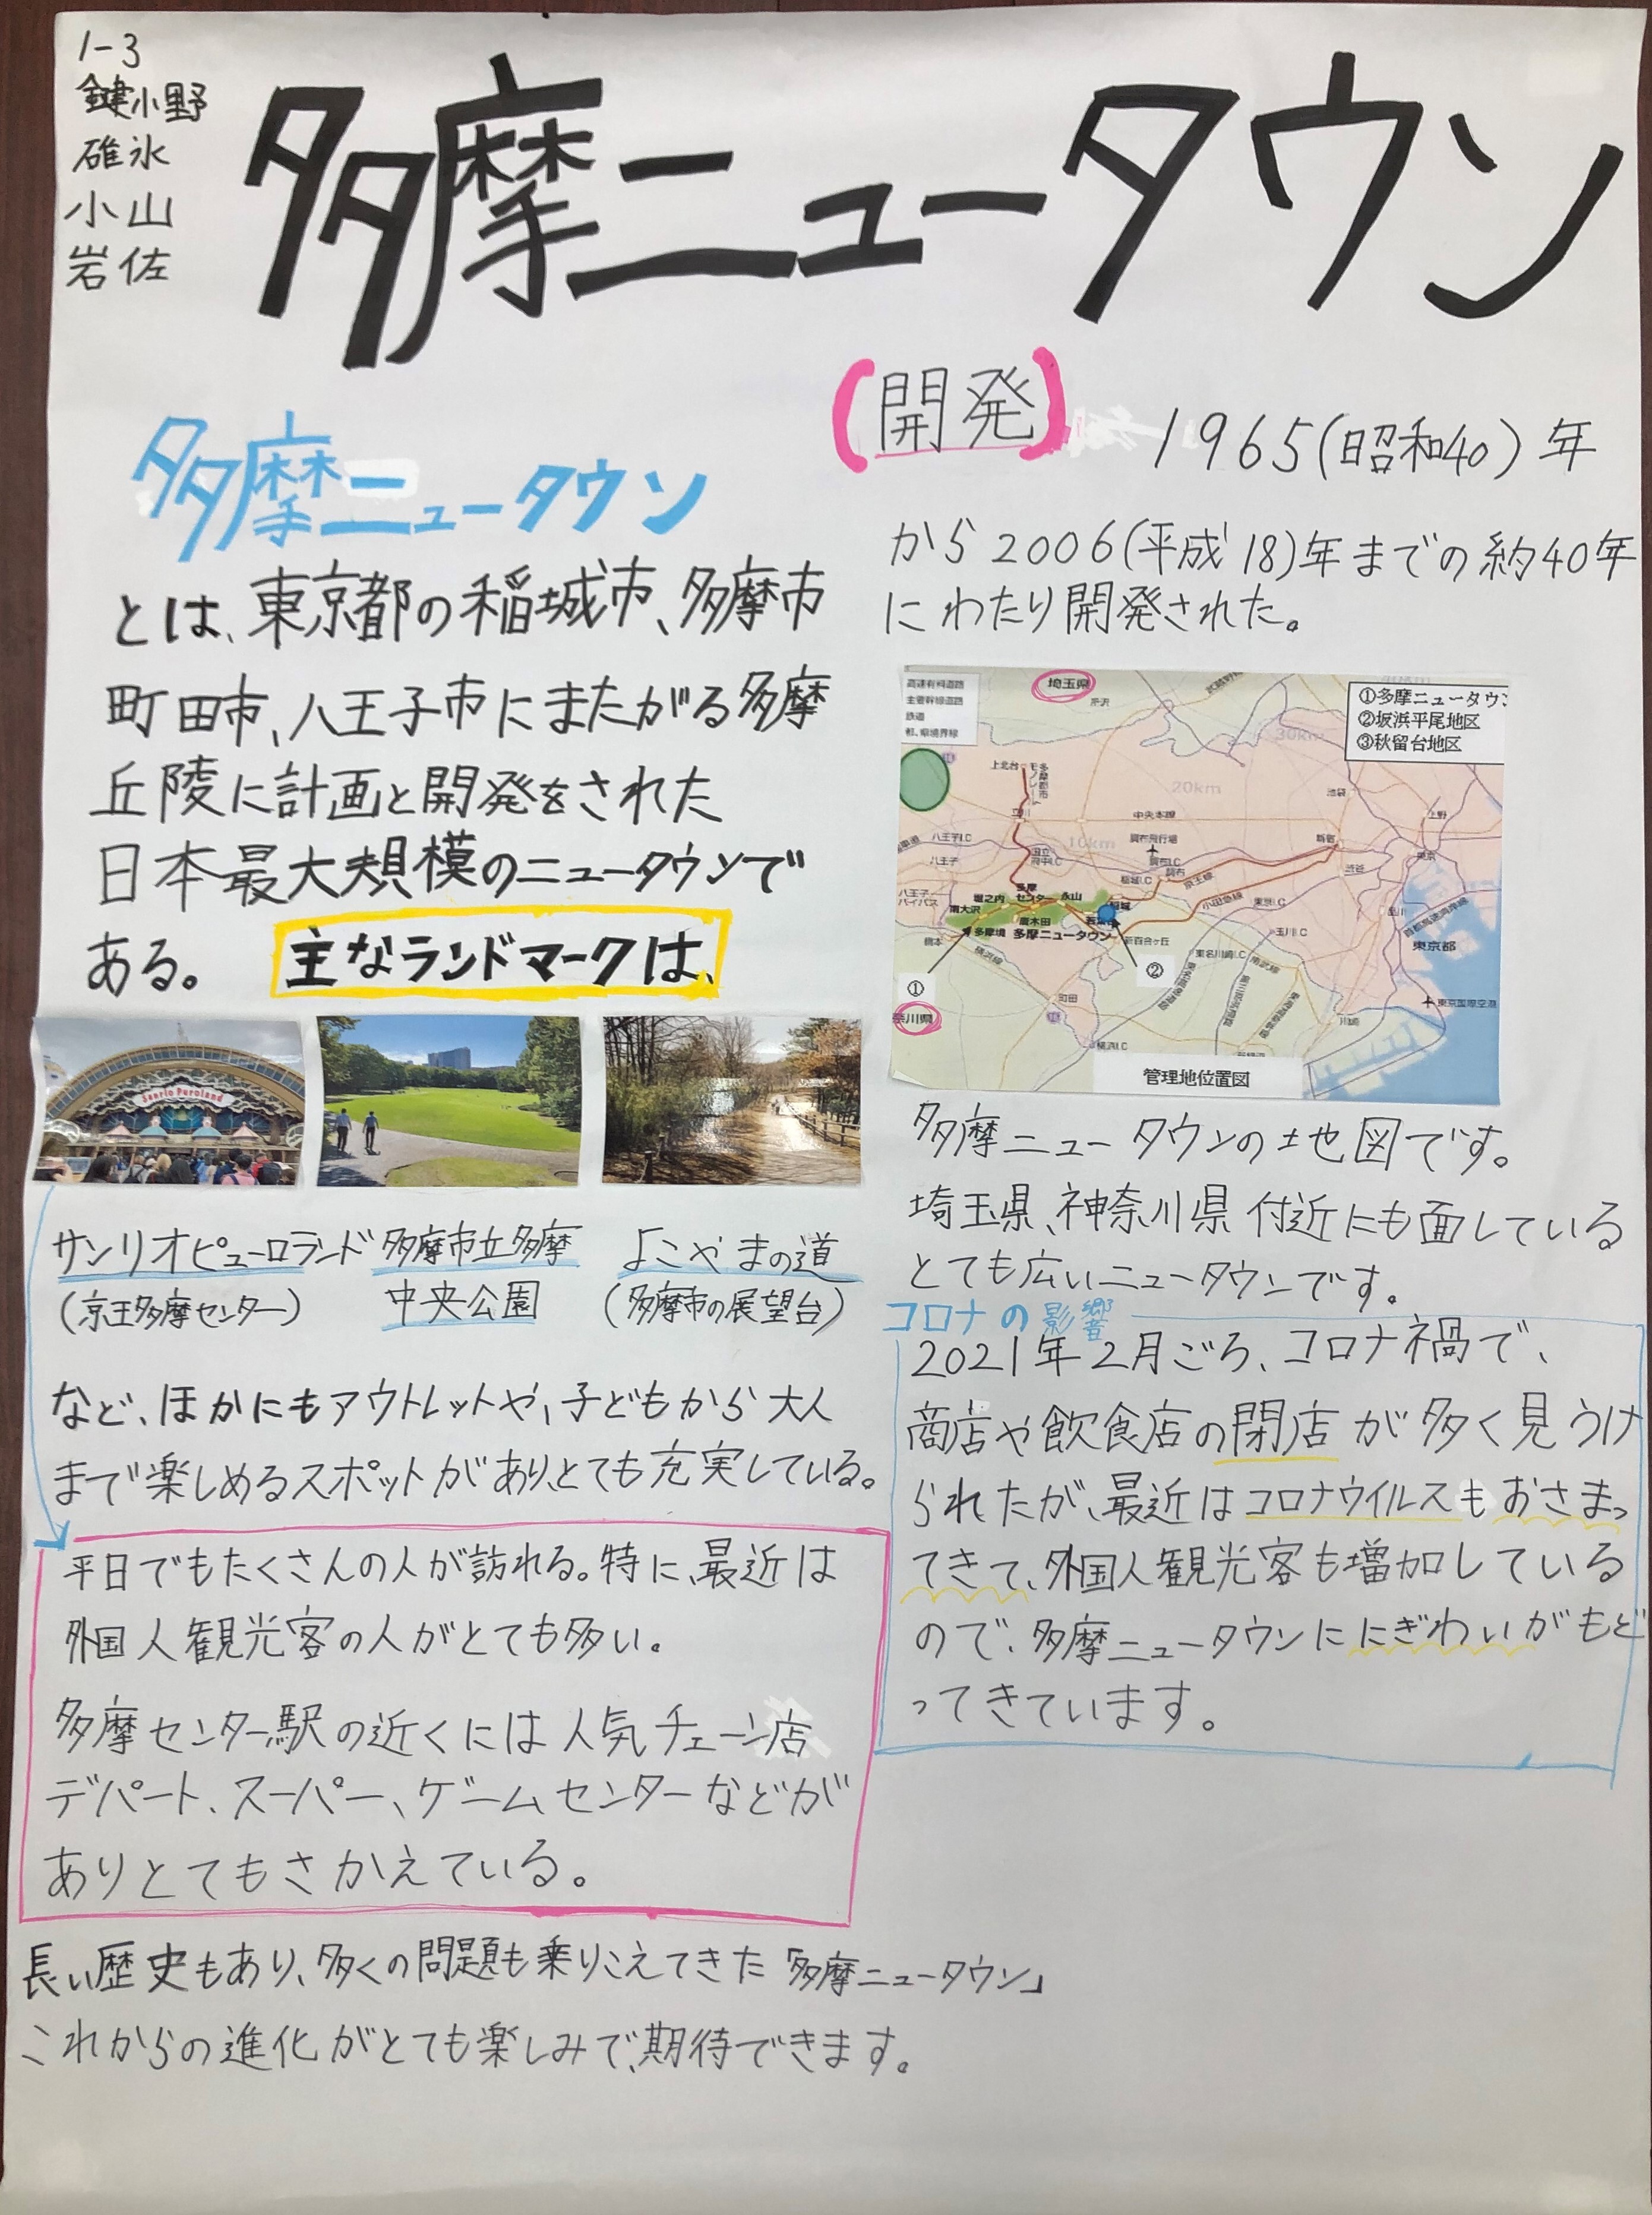 1-3
鍵小野
碓氷
小山
岩佐
多摩ニュータウン
多摩ニュータウン
とは、東京都の稲城市、多摩市
町田市、八王子市にまたがる多摩
丘陵に計画と開発をされた
日本最大規模のニュータウンで
ある。 主なランドマークは、
Sanrio Puroland
サンリオピューロランド
(京王多摩センター)
多摩市立多摩
中央公園
よこやまの道
(多摩市の展望台)
など、ほかにもアウトレットや、子どもから大人
まで楽しめるスポットがあり、とても充実している。
平日でもたくさんの人が訪れる。特に、最近は
外国人観光客の人がとても多い。
多摩センター駅の近くには人気チェーン店
デパート、スーパー、ゲームセンターなどが
ありとてもさかえている。
長い歴史もあり、多くの問題も乗りこえてきた「多摩ニュータウン」
これからの進化がとても楽しみで、期待できます。
(開発) 1965(昭和40)年
から2006(平成18)年までの約40年
にわたり開発された。
高速有料道路
主要幹線道路
鉄道
都、県境界線
埼玉県
所沢
①多摩ニュータウン
②坂浜平尾地区
③秋留台地区
30km
20km
10km
上北台
多摩都市モノレール
立川
中央本線
池袋
上野
八王子I.C
八王子
八王子バイパス
国立府中I.C
調布飛行場
調布I.C
調布
新宿
渋谷
東京
稲城I.C
京王線
小田急線
東京I.C
品川
首都高速湾岸線
多摩センター
永山
堀之内
南大沢
唐木田
稲城
若葉台
多摩境
多摩ニュータウン
新百合ヶ丘
橋本
横浜線
玉川I.C
東名川崎I.C
南武線
東京都
①
②
奈川県
町田
川崎
東京国際空港
横浜I.C
管理地位置図
多摩ニュータウンの土地図です。
埼玉県、神奈川県付近にも面している
とても広いニュータウンです。
コロナの影響
2021年2月ごろ、コロナ禍で、
商店や飲食店の閉店が多く見うけ
られたが、最近はコロナウイルスもおさまっ
てきて、外国人観光客も増加している
ので、多摩ニュータウンににぎわいがもど
ってきています。